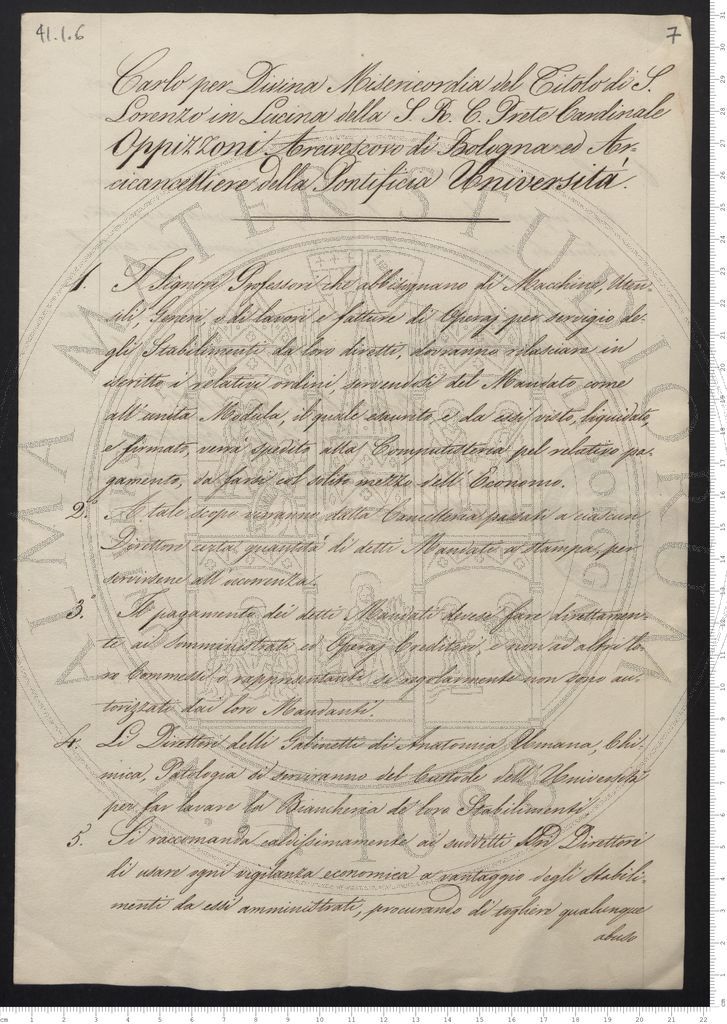 41.1.6
7
Carlo per Divina Misericordia del Titolo di S.
Lorenzo in Lucina della S. R. C. Prete Cardinale
Oppizzoni Arcivescovo di Bologna ed Ar-
cicancelliere della Pontificia Università.
1. I Signori Professori che abbisognano di Macchine, Uten-
sili, Generi, o di lavori e fatture di Operaj per servigio de-
gli Stabilimenti da loro diretti, dovranno rilasciare in
iscritto i relativi ordini servendosi del Mandato come
all'unita Modula, il quale esaurito, e da essi visto, liquidato,
e firmato, verrà spedito alla Computisteria pel relativo pa-
gamento, da farsi col solito mezzo dell'Economo.
2.° A tale scopo verranno dalla Cancelleria passati a ciascun
Direttore certa quantità di detti Mandati a stampa, per
servirsene all'occorrenza.
3.° Il pagamento dei detti Mandati devesi fare direttamen-
te ai Somministrati ed Operaj Creditori, e non ad altri lo-
ro Commessi o rappresentanti se regolarmente non sono au-
torizzati dai loro Mandanti.
4. Li Direttori delli Gabinetti di Anatomia Umana, Chi-
mica, Patologia si serviranno del Custode dell'Università
per far lavare la Biancheria de' loro Stabilimenti
5. Si raccomanda caldissimamente ai suddetti Direttori
di usare ogni vigilanza economica a vantaggio degli Stabili-
menti da essi amministrati, procurando di togliere qualunque
abuso
ALMA MATER STUDIORUM
A.D. 1088